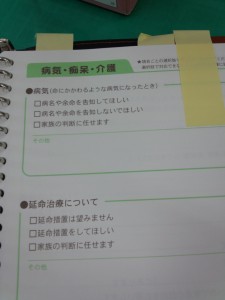 病気・痴呆・介護
●病気(命にかかわるような病気になったとき)
□病名や余命を告知してほしい
□病名や余命を告知しないでほしい
□家族の判断に任せます
その他
●延命治療について
□延命措置は望みません
□延命措置をしてほしい
□家族の判断に任せます
その他